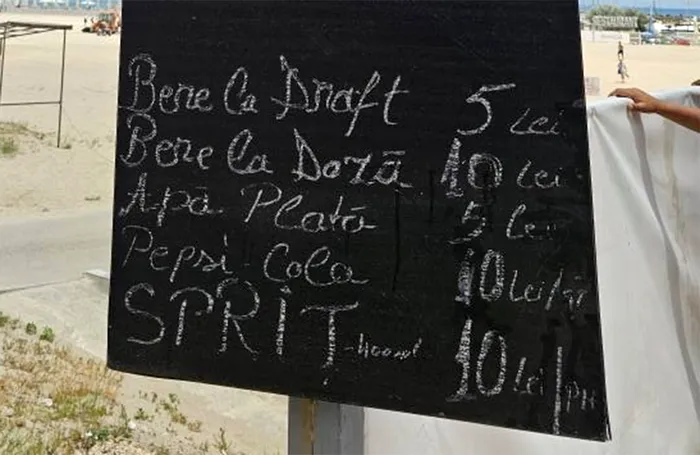 Bere La Draft 5 Lei
Bere La Doză 10 Lei
Apă Plată 5 Lei
Pepsi Cola 10 Lei
SPRIȚ - 400 ml 10 Lei/pH